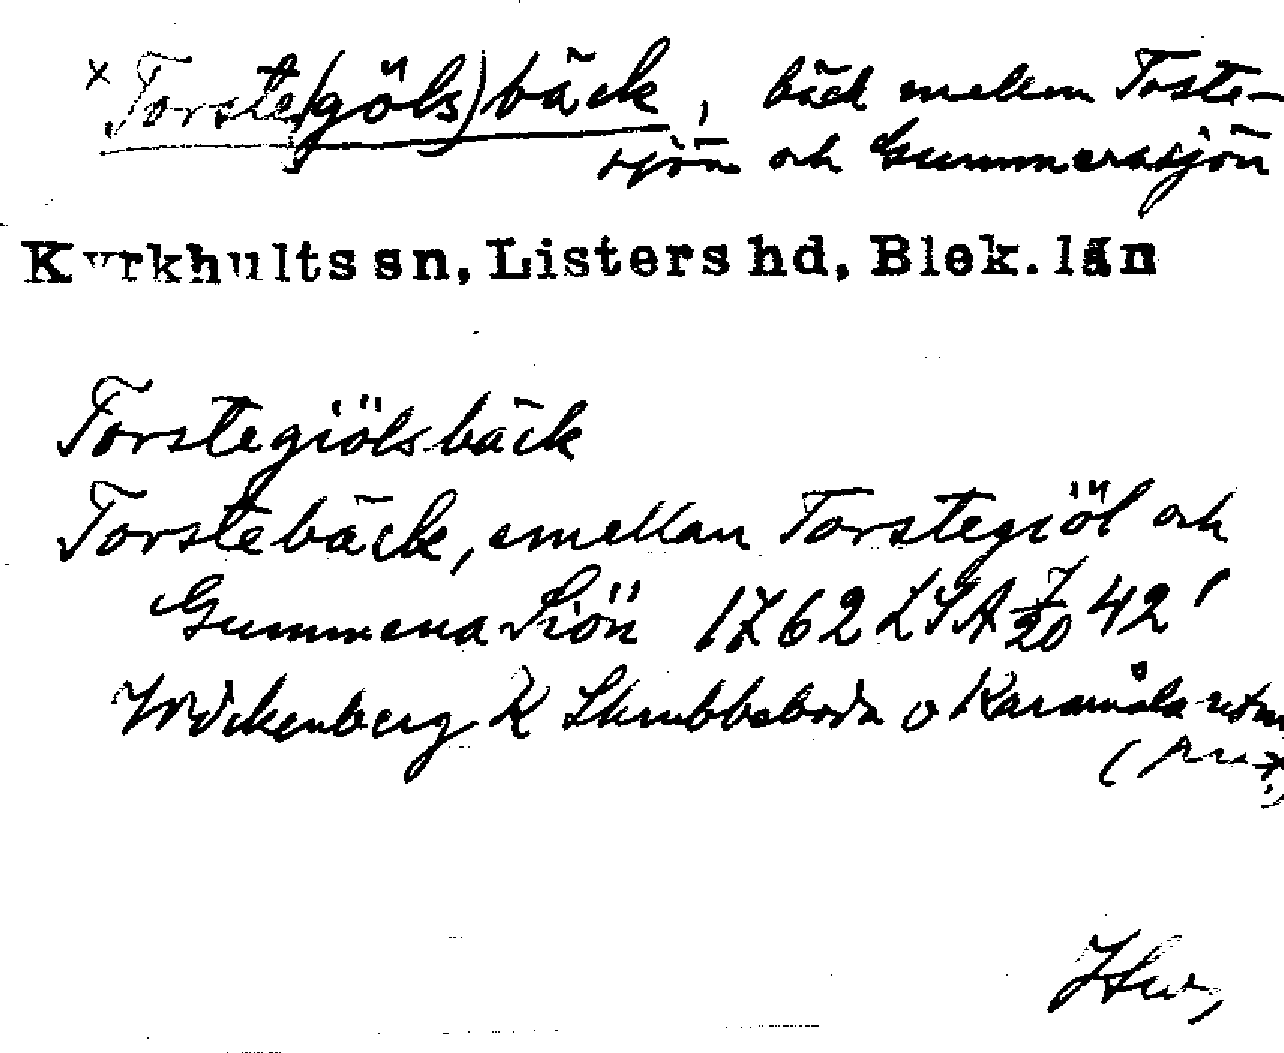 × Torste(göls)bäck, bäck mellan Toste-
sjön och Gummerasjön
Kyrkhults sn, Listers hd, Blek. län
Torstegiölsbäck
Torstebäck, emellan Torstegiöl och
Gummena Siön 1762 LSA 42'
Wickenberg K Skrubbeboda o Karamåla